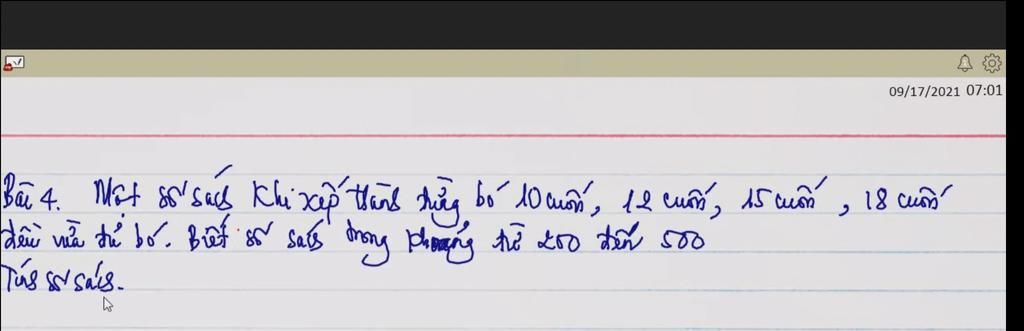 09/17/2021 07:01
Bài 4. Một số sách khi xếp thành từng bó 10 cuốn, 12 cuốn, 15 cuốn, 18 cuốn
đều vừa đủ bó. Biết số sách trong khoảng từ 200 đến 500
Tính số sách.